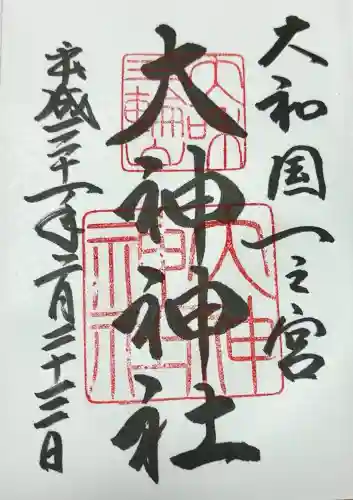 大和国一之宮
大神神社
平成三十一年二月二十三日
三輪山
大神
神社